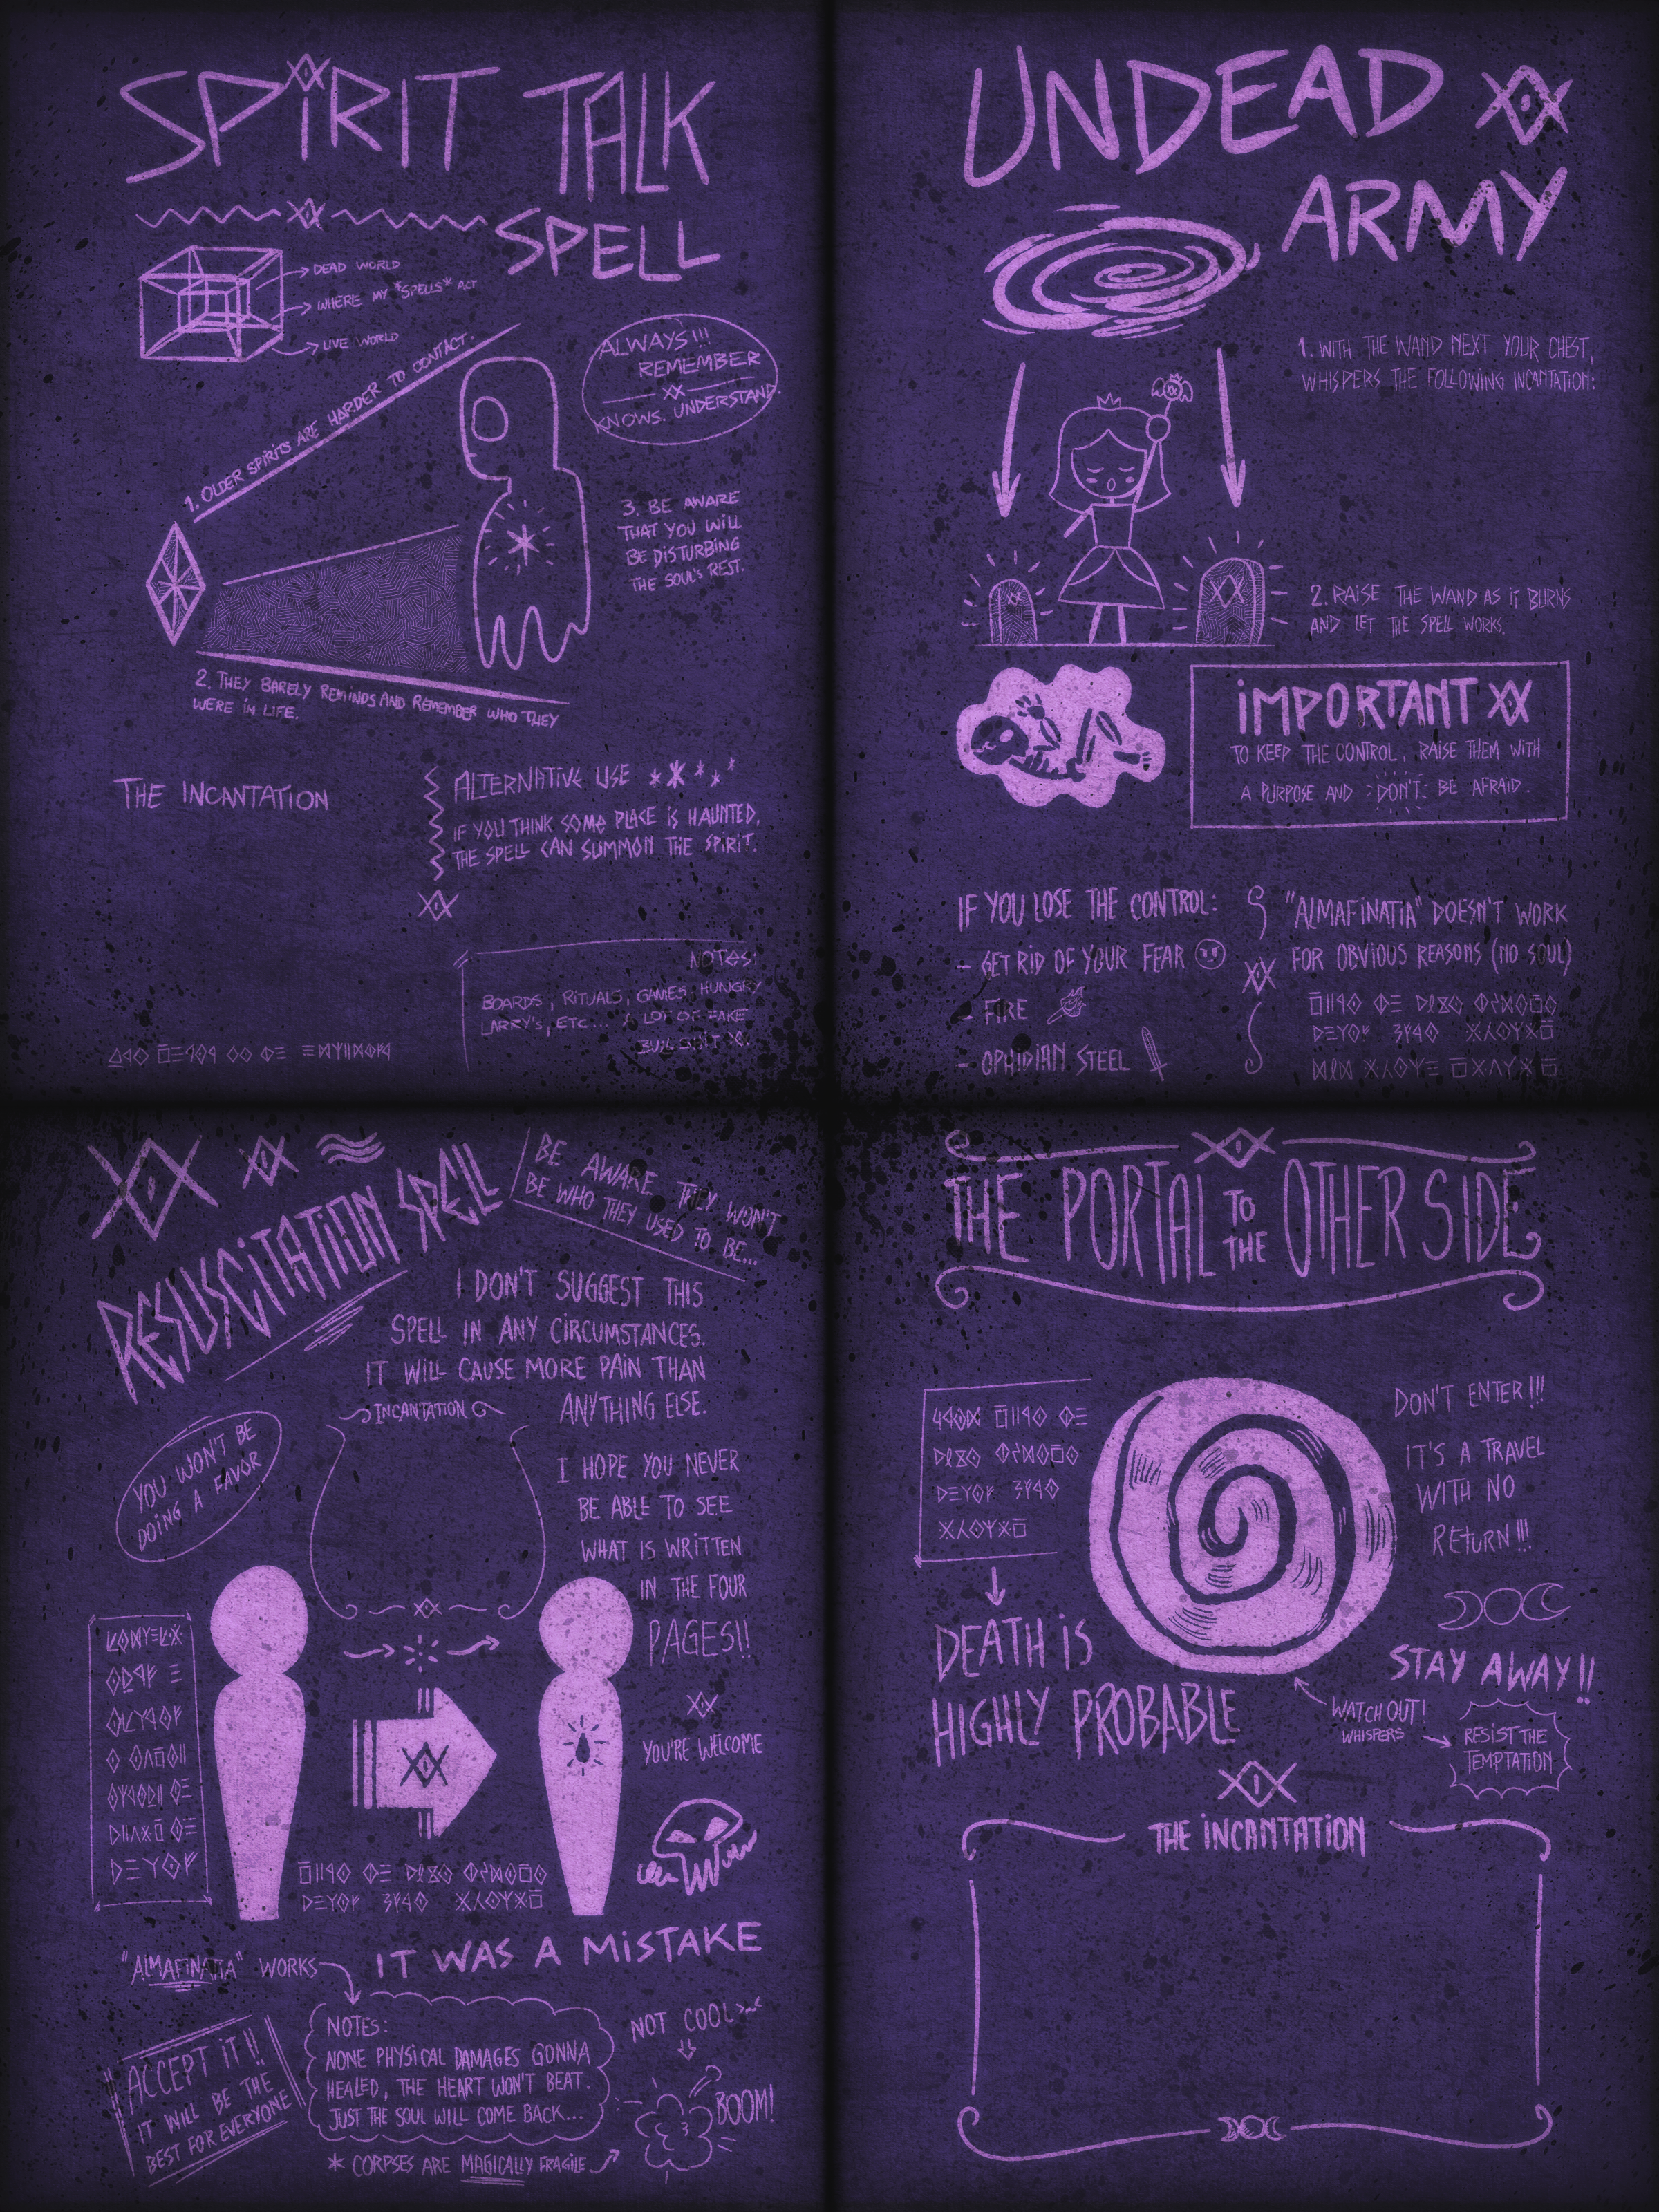 SPIRIT TALK
SPELL
DEAD WORLD
WHERE MY *SPELLS* ACT
LIVE WORLD
ALWAYS!!!
REMEMBER
KNOWS. UNDERSTAND.
1. OLDER SPIRITS ARE HARDER TO CONTACT.
3. BE AWARE
THAT YOU WILL
BE DISTURBING
THE SOUL'S REST.
2. THEY BARELY REMINDS AND REMEMBER WHO THEY
WERE IN LIFE.
THE INCANTATION
ALTERNATIVE USE
IF YOU THINK SOME PLACE IS HAUNTED,
THE SPELL CAN SUMMON THE SPIRIT.
NOTES:
BOARDS, RITUALS, GAMES, HUNGRY
LARRY'S, ETC... A LOT OF FAKE
UNDEAD
ARMY
1. WITH THE WAND NEXT YOUR CHEST,
WHISPERS THE FOLLOWING INCANTATION:
2. RAISE THE WAND AS IT BURNS
AND LET THE SPELL WORKS.
IMPORTANT
TO KEEP THE CONTROL, RAISE THEM WITH
A PURPOSE AND DON'T BE AFRAID.
IF YOU LOSE THE CONTROL:
- GET RID OF YOUR FEAR
- FIRE
- OPHIDIAN STEEL
"ALMAFINATIA" DOESN'T WORK
FOR OBVIOUS REASONS (NO SOUL)
RESUSCITATION SPELL
BE AWARE THEY WON'T
BE WHO THEY USED TO BE...
I DON'T SUGGEST THIS
SPELL IN ANY CIRCUMSTANCES.
IT WILL CAUSE MORE PAIN THAN
ANYTHING ELSE.
INCANTATION
YOU WON'T BE
DOING A FAVOR
I HOPE YOU NEVER
BE ABLE TO SEE
WHAT IS WRITTEN
IN THE FOUR
PAGES!!
YOU'RE WELCOME
IT WAS A MISTAKE
"ALMAFINATIA" WORKS
NOTES:
NONE PHYSICAL DAMAGES GONNA
HEALED, THE HEART WON'T BEAT.
JUST THE SOUL WILL COME BACK...
* CORPSES ARE MAGICALLY FRAGILE
ACCEPT IT!!
IT WILL BE THE
BEST FOR EVERYONE
NOT COOL >~<
BOOM!
THE PORTAL TO THE OTHER SIDE
DON'T ENTER!!!
IT'S A TRAVEL
WITH NO
RETURN!!!
DEATH IS
HIGHLY PROBABLE
STAY AWAY!!
WATCH OUT!
WHISPERS
RESIST THE
TEMPTATION
THE INCANTATION